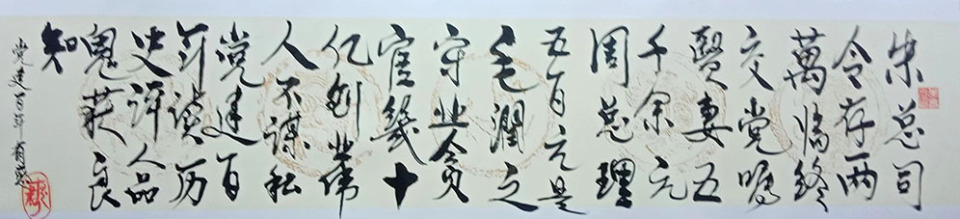 朱总司
令存两
萬临终
交党嘱
贤妻五
千余元
周总理
五百元是
毛润之
守业贪
官幾十
亿创业伟
人不谋私
党建百
年读历
史评人品
获良
知
党建百年有感